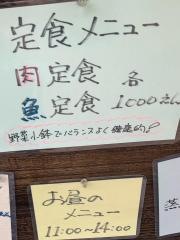 定食メニュー
肉定食 各
魚定食 1000えん
野菜小鉢でバランスよく健康的!
お昼の
メニュー
11:00〜14:00
蒸